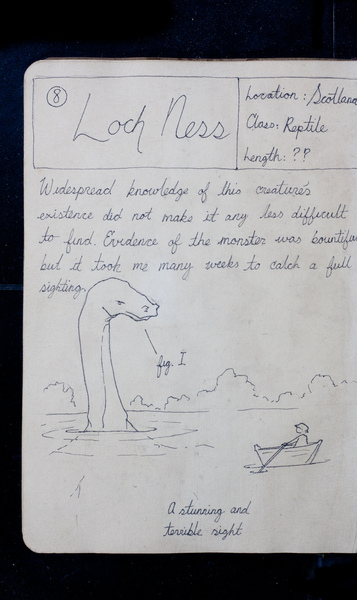 8
Loch Ness
Location: Scotland
Class: Reptile
Length: ??
Widespread knowledge of this creature's
existence did not make it any less difficult
to find. Evidence of the monster was bountiful
but it took me many weeks to catch a full
sighting.
fig. I
A stunning and
terrible sight